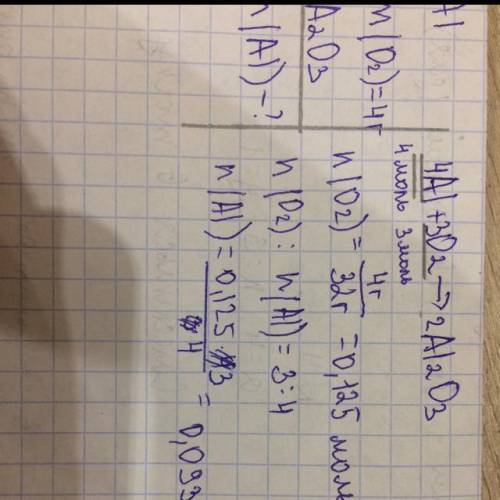 Al
m(O₂)=4г
A₂O₃
n(Al)-?
4Al+3O₂→2Al₂O₃
4 моль 3 моль
n(O₂)=4г/32г=0,125 моль
n(O₂):n(Al)=3:4
n(Al)=0,125·3/4=0,093